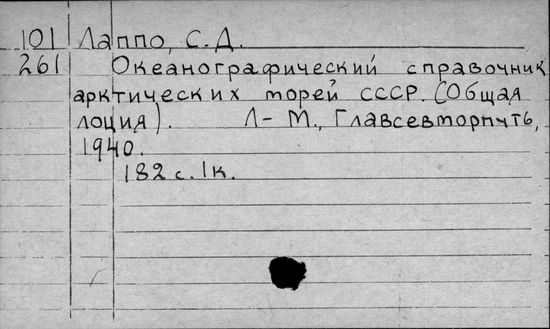 101 Лаппо, С. Д.
261 Океанографический справочник
арктических морей СССР. (Общая
лоция). Л - М., Главсевморпуть,
1940.
182 с. 1к.